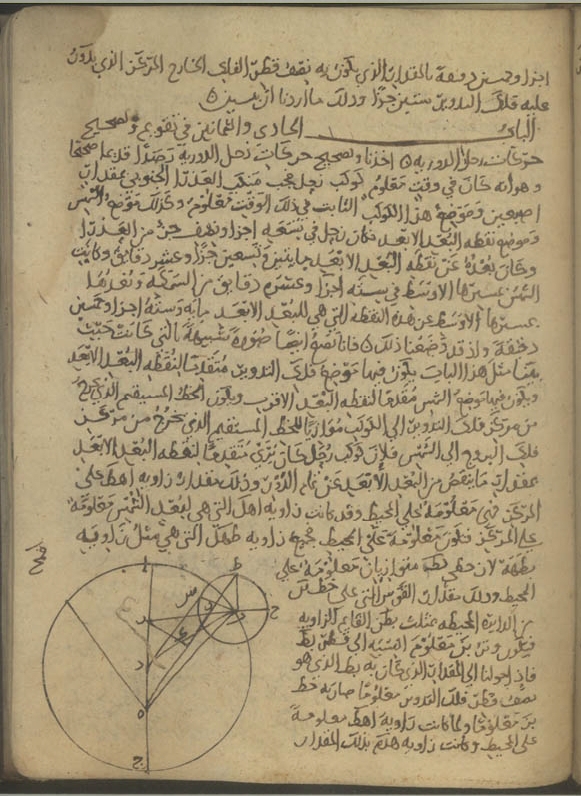 اجزا وخمسين دقيقة بالمقدار الذي يكون به نصف قطر الفلك الخارج المركز الذي يكون
عليه فلك التدوير ستين جزًا وذلك ما اردنا ان نبين
الباب الحادي والثمانين في تقويم وتصحيح
حركات زحل الدورية اخذنا في تصحيح حركات زحل الدورية رصدًا قديما صحيحا
وهو انه كان في وقت معلوم كوكب زحل تحت منكب العذرا الجنوبي بمقدار
اصبعين وموضع هذا الكوكب الثابت في ذلك الوقت معلوم وكذلك موضع الشمس
وموضع نقطة البعد الابعد فكان زحل في تسعة اجزا ونصف جزء من العذرا
وكان بعده عن نقطة البعد الابعد مايتين وتسعين جزًا وعشر دقايق وكانت
الشمس بمسيرها الاوسط في ستة اجزا وعشرة دقايق من السمكة وبعدها
بمسيرها الاوسط عن هذه النقطة التي هي للبعد الابعد مايه وستة اجزا وخمسين
دقيقة واذ قد وضعنا ذلك فانا نضع ايضا صورة شبيهة بالتي كانت
مثل هذا الباب يكون فيها موضع فلك التدوير متقدما لنقطة البعد الابعد
ويكون فيها موضع الشمس متقدما لنقطة البعد الاقرب ويكون الخط المستقيم الذي يخرج
من مركز فلك التدوير الى الكوكب موازيا للخط المستقيم الذي يخرج من مركز
فلك البروج الى الشمس فلان كوكب زحل كان يرى متقدما لنقطة البعد الابعد
بمقدار ما ينقص من البعد الابعد عن تمام الدور وذلك مقدار زاوية اهط على
المركز فهي معلومة على المحيط وقد كانت زاوية اهل التي هي لبعد الشمس معلومة
على المركز فتكون معلومة على المحيط فجميع زاوية طهل التي هي مثل زاوية
بطه لان خطي متوازيان معلومة على
المحيط وذلك مقدار القوس التي على خط
من الدايرة المحيطة بمثلث القايم الزاوية
فيكون وتر معلوم النسبة الى قطر بط
فاذا حولنا الى المقدار الذي كان به بط الذي هو
نصف قطر فلك التدوير معلومًا صار به خط
معلومًا ولما كانت زاوية اهط معلومة
على المحيط وكانت زاوية هدم بذلك المقدار
ا
ط
ج
د
ه